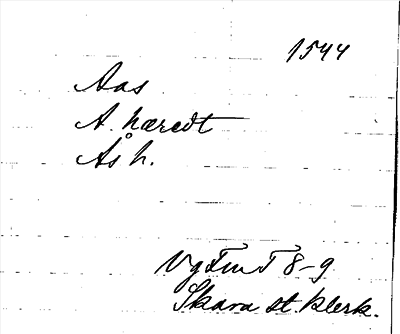 1544
Aas
A. hæredt
Ås h.
Vg Fmt 8-9
Skara st. klerk.